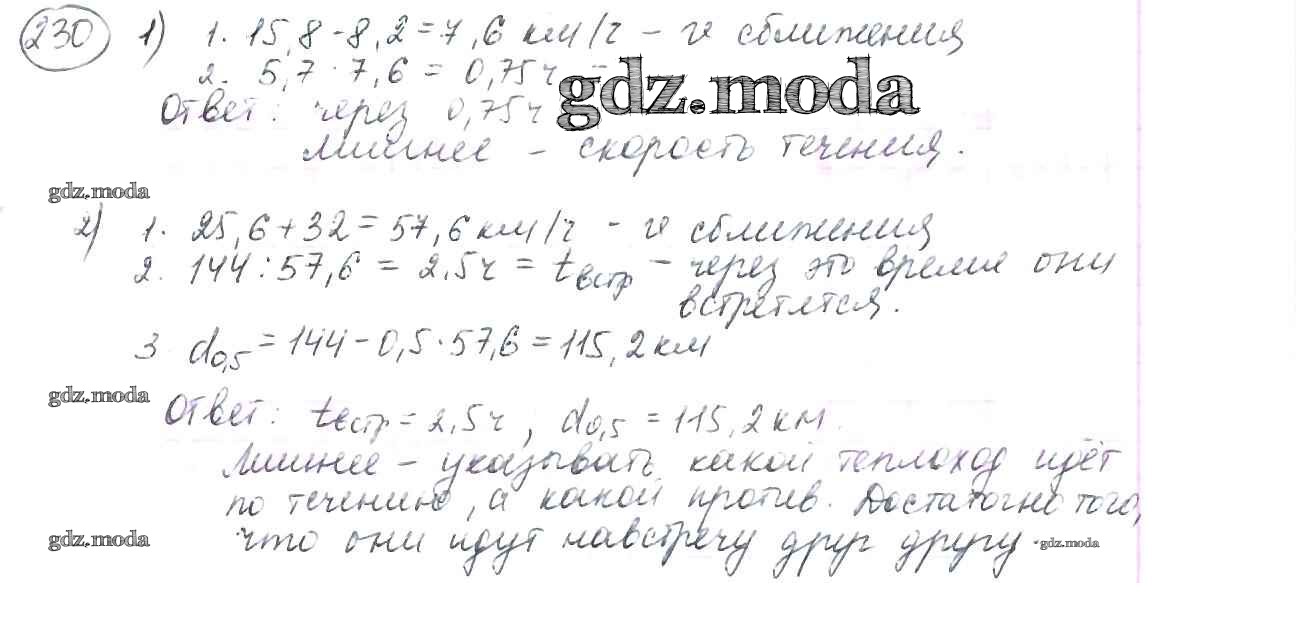 230 1) 1. 15,8 - 8,2 = 7,6 км/ч - v сближения
2. 5,7 : 7,6 = 0,75 ч -
gdz.moda
Ответ: через 0,75 ч
Лишнее - скорость течения.
gdz.moda
2) 1. 25,6 + 32 = 57,6 км/ч - v сближения
2. 144 : 57,6 = 2,5 ч = tвстр - через это время они
встретятся.
3 d0,5 = 144 - 0,5 · 57,6 = 115,2 км
gdz.moda
Ответ: tвстр = 2,5 ч, d0,5 = 115,2 км.
Лишнее - указывать, какой теплоход идёт
по течению, а какой против. Достаточно того,
gdz.moda
что они идут навстречу друг другу.
gdz.moda